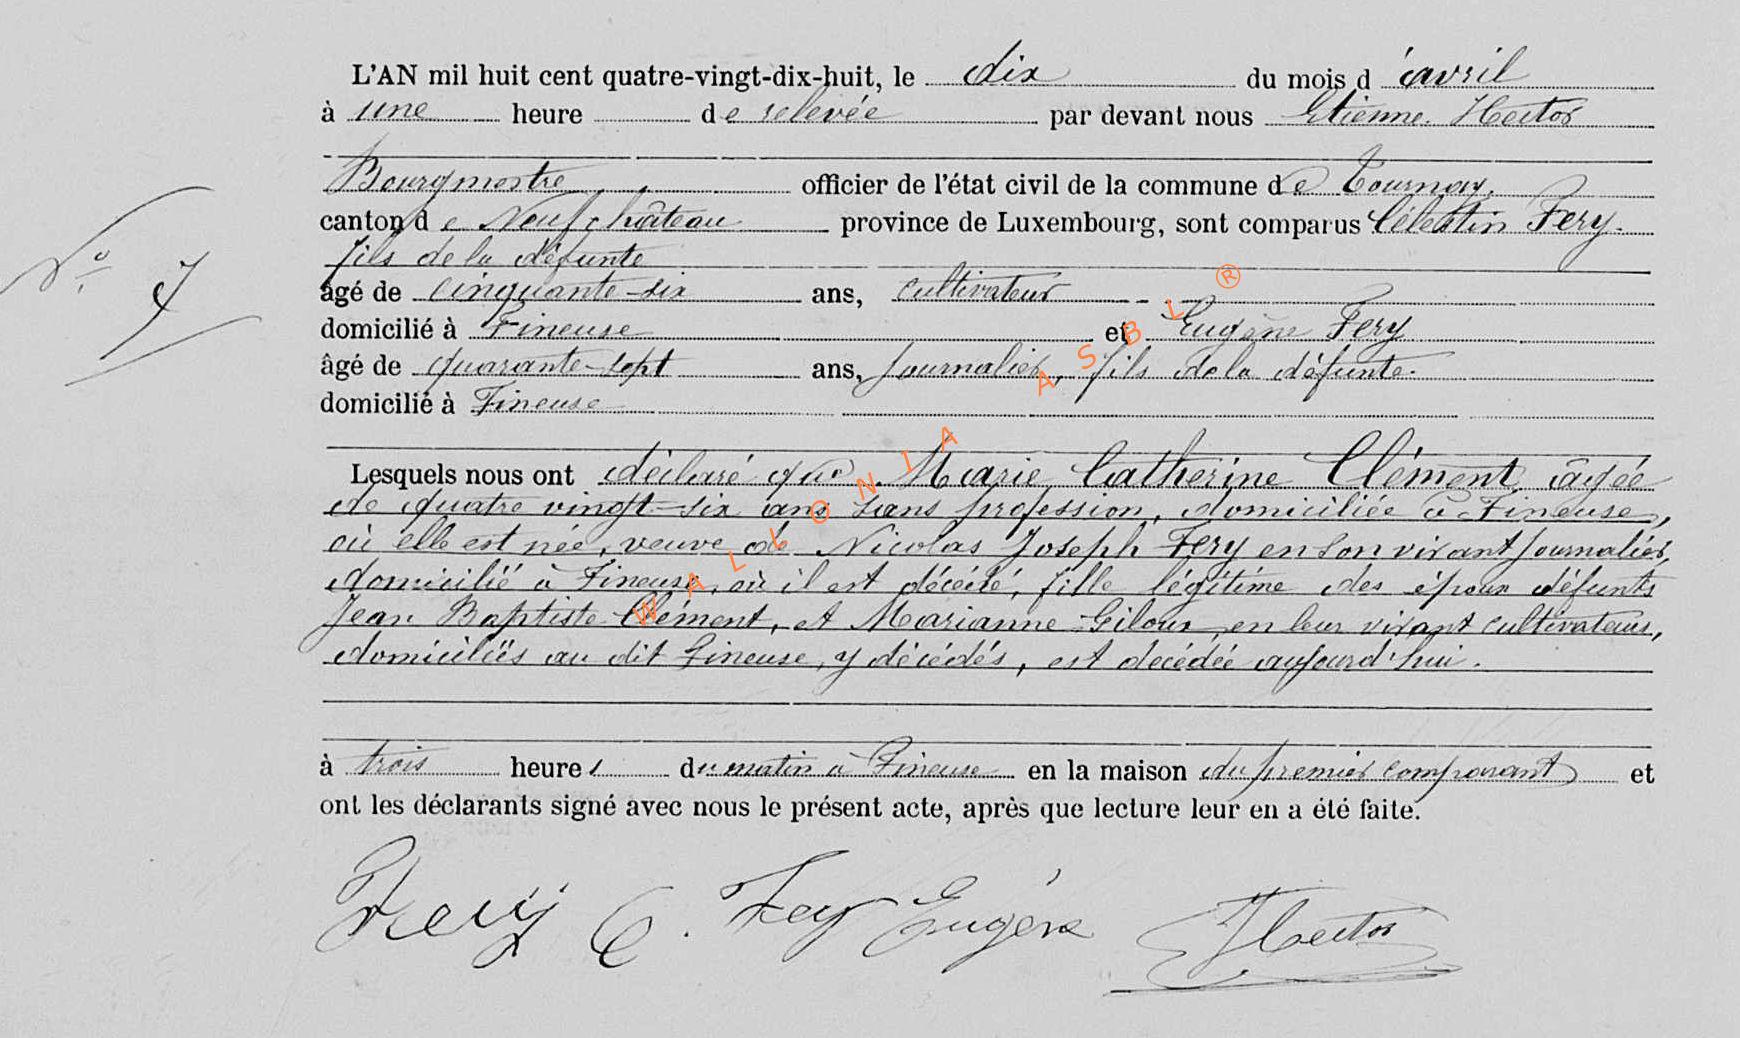 L'AN mil huit cent quatre-vingt-dix-huit, le dix du mois d'avril
à une heure de relevée par devant nous Etienne Hector
Bourgmestre officier de l'état civil de la commune de Tournay,
canton de Neufchâteau province de Luxembourg, sont comparus Célestin Fery.
fils de la défunte
âgé de cinquante-six ans, cultivateur
domicilié à Fineuse et Eugène Fery
âgé de quarante-sept ans, Journalier, fils de la défunte.
domicilié à Fineuse
Lesquels nous ont déclaré que Marie Catherine Clément, âgée
de quatre vingt-six ans sans profession, domiciliée à Fineuse,
où elle est née, veuve de Nicolas Joseph Fery en son vivant Journalier,
domicilié à Fineuse, où il est décédé, fille légitime des époux défunts
Jean Baptiste Clément, et Marianne Giloux, en leur vivant cultivateurs,
domiciliés au dit Fineuse, y décédés, est decédée aujourd'hui.
à trois heures du matin à Fineuse en la maison du premier comparant et
ont les déclarants signé avec nous le présent acte, après que lecture leur en a été faite.
Fery C. Fery Eugène Hector
N° 7
WALLONIA ASBL ®